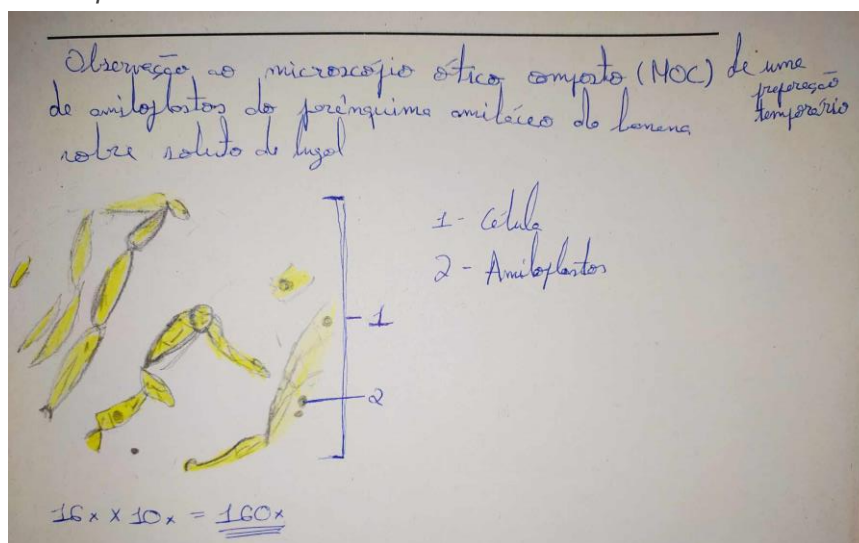 Observação ao microscópio ótico composto (MOC) de uma
preparação
temporário
de amiloplastos do parênquima amiláceo do banana
sobre soluto de lugol
1 - Célula
2 - Amiloplastos
1
2
16x x 10x = 160x